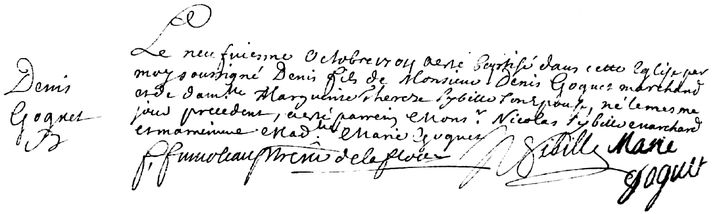 Denis
Goguet
B
Le neufuiesme Octobre 1704 a esté baptisé dans cette Eglise par
moy soussigné Denis fils de Monsieur Denis Goguet marchand
et de dam.lle Marguerite Therese Sybille son Epouse, né le mesme
jour precedent, a esté parrein Mons.r Nicolas Sybille marchand
et mareinne Mad.lle Marie Goguet
f. prieur de la
N Sibille Marie
Goguet